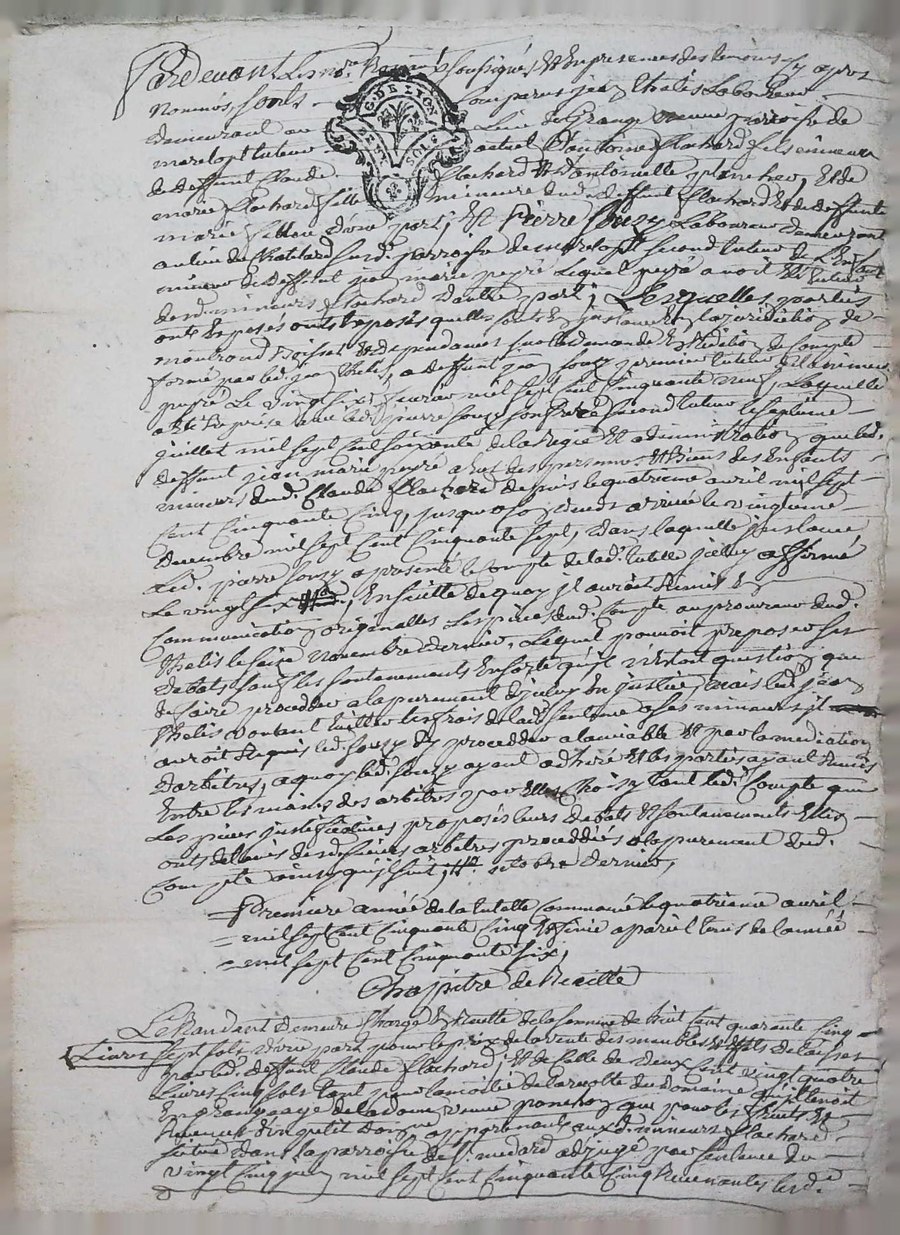 Pardevant Les no.re Royaux soussignés Et En presences des temoins cy apres
Nommés Sont comparus jean thelis Laboureur
demeurant au Lieu de Grange neuve parroisse de
marclopt tuteur actuel d'antoine flachard fils mineur
de deffunt Claude flachard Et d'antoinette planchet, Et de
marie flachard fille mineure dud. deffunt flachard Et de deffunte
marie d'une part; Et Pierre Souzy Laboureur demeurant
au lieu du Chatelard susd. parroisse de marclopt second tuteur de L'Enfant
mineur de deffunt jean marie peyré Lequel peyré avoit Eté tuteur
desd. mineurs flachard d'autre part; Lesquelles parties
ont Exposés quelles sont En instance En la juridiction de
montrond Boisset Et dependances sur la demande En Reddition de Compte
formé par led. jean thelis, a deffunt jean Souzy premier tuteur de la mineure
peyré Le vingt six fevrier mil sept cent cinquante neuf, Laquelle
a Eté Reprise avec led. pierre Souzy son frere second tuteur le septieme
juillet mil sept cent soixante de la Regie Et administration que led.
deffunt jean marie peyré a Eut des personnes Et Biens des Enfants
mineurs dud. Claude flachard depuis le quatrieme avril mil sept
Cent Cinquante Cinq, jusqu'a son deces arrivé le vingtieme
Decembre mil sept Cent Cinquante sept, dans laquelle instance
Led. pierre Souzy a presenté le compte de lad. tutelle jcelluy affirmé
Le vingt six, Ensuitte de quoy jl auroit Remis En
Communication originalles Les pieces dud. Compte au procureur dud.
thelis le seize Novembre Dernier, Lequel pouvoit proposer ses
Debats sauf les soutenements Ensorte qu'il n'Etoit question que
de faire proceder a lapurement d'jceluy En justice, mais led. jean
thelis voulant Eviter les frais de lad. sentence a ses mineurs jl
auroit Requis led. Souzy d'y proceder a lamiable Et par la mediation
Darbitres, a quoy led. Souzy ayant adheré Et les parties ayant Remis
Entre les mains des arbitres par Elles Choisy tant led. Compte que
Les pieces justificatives proposés leurs debats Et soutenements Elles
ont de lavis desd. sieurs arbitres proceddés a lapurement dud.
Compte ainsy qu'jl suit, octobre dernier,
Premiere année de la tutelle Commencé le quatrieme avril
mil sept Cent Cinquante Cinq Et finie a pareil tems de lannée
mil sept Cent Cinquante six,
Chapitre de Recette
Le Rendant Demeure Chargé En Recette de la Somme de huit Cent quarante Cinq
Livres sept sols d'une part pour le prix de la vente des meubles Et Effets delaissés
par led. deffunt Claude flachard; Et de Celle de Deux Cent vingt quatre
Livres Cinq sols tant pour la moitié de la recolte du Domaine qu'jl tenoit
En grangeage de la dame veuve que pour les fruits Et
Revenus d'un petit Domaine appartenant auxd. mineurs flachard
situé Dans la parroisse de St. medard adjugé par sentence du
vingt Cinq mil sept Cent Cinquante Cinq Revenantes lesd.